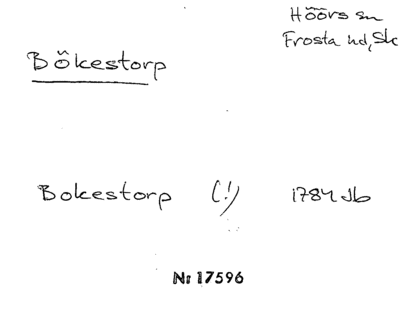 Höörs sn
Frosta hd, Sk
Bökestorp
Bokestorp (!) 1784 Jb
Nr 17596